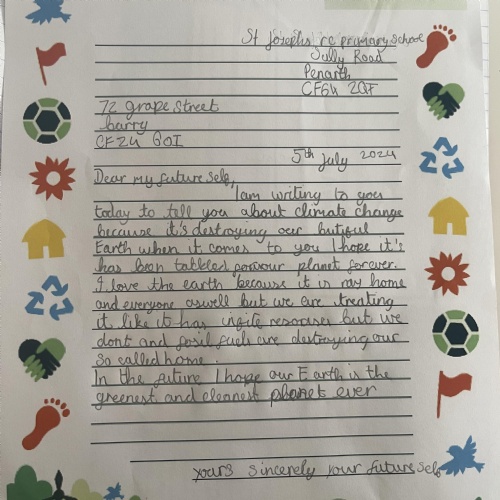 St Josephs rc primary School
Sully Road
Penarth
CF64 2QT
72 grape street
barry
CF24 6OI
5th July 2024
Dear my future self,
I am writing to you
today to tell you about climate change
because it's destroying our butiful
Earth when it comes to you I hope it's
has been tabbled for our planet forever.
I love the earth because it is my home
and everyone aswell but we are treating
it like it has infite resorises but we
dont and fosil fuels are destroying our
so called home.
In the future I hope our Earth is the
greenest and cleanest planet ever
yours sincerely your future self